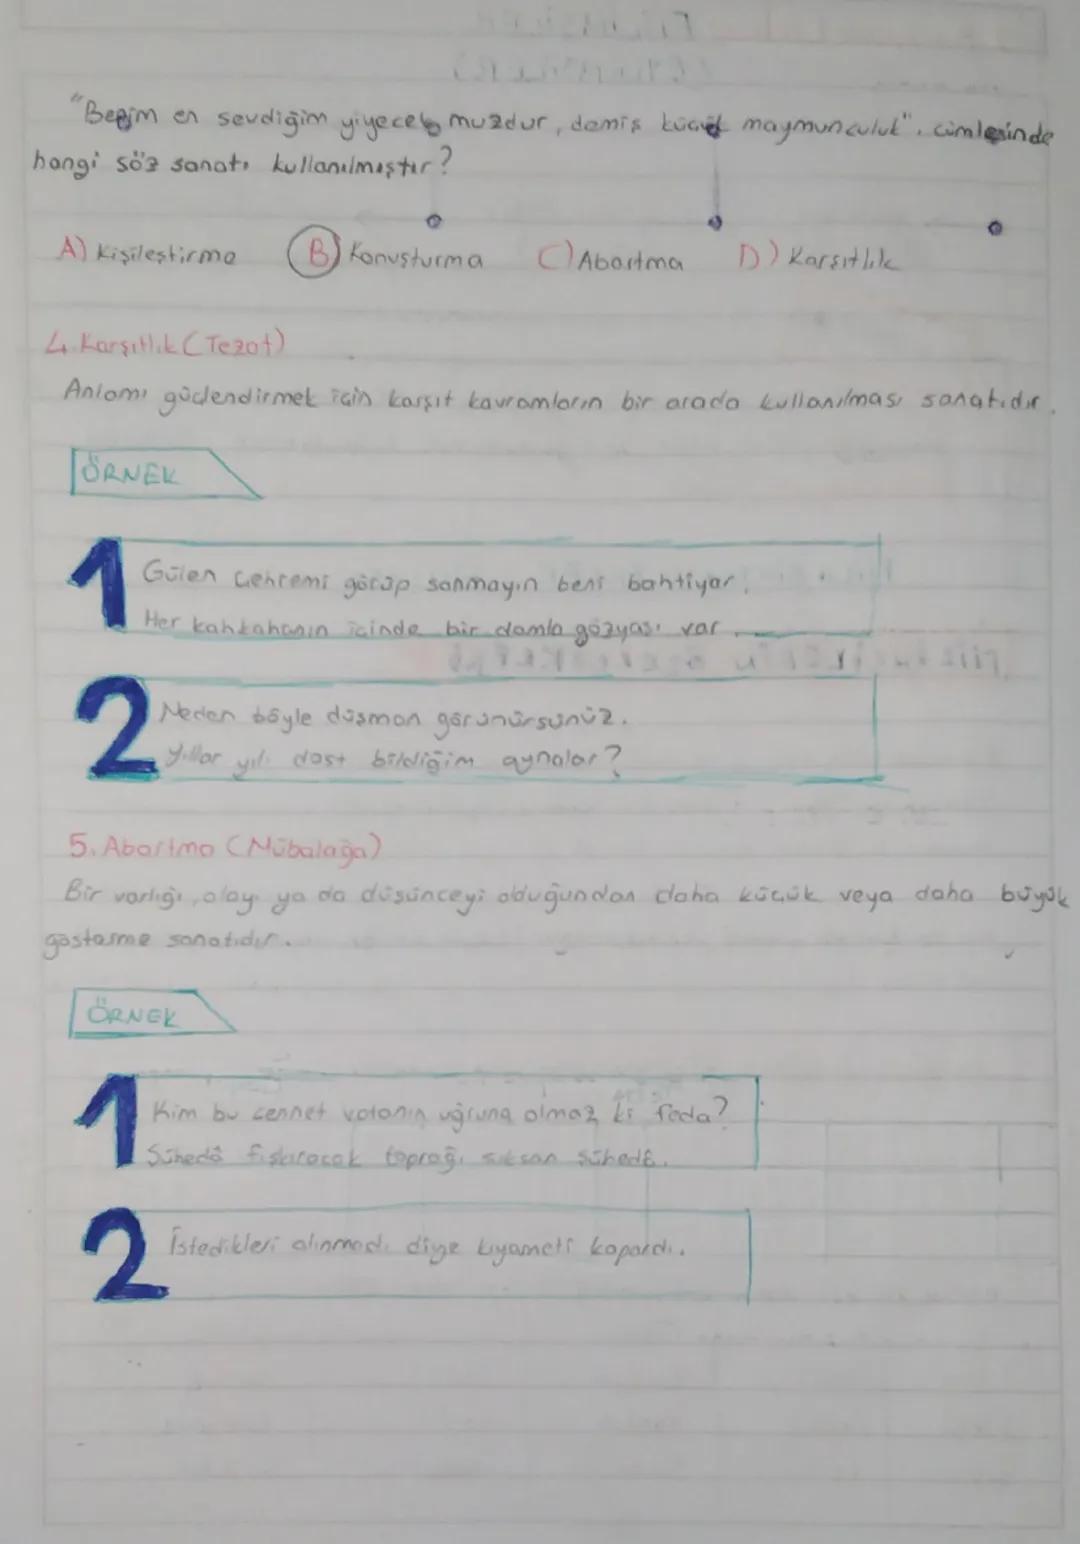 "Benim en sevdiğim yiyecek muzdur, demiş küçük maymunculuk". cümlesinde
hangi söz sanatı kullanılmıştır?
A) Kişileştirme B) Konuşturma C) Abartma D) Karşıtlık
4. Karşıtlık (Tezat)
Anlamı güçlendirmek için karşıt kavramların bir arada kullanılması sanatıdır.
ÖRNEK
1 Gülen çehremi görüp sanmayın beni bahtiyar,
Her kahkahanın içinde bir damla gözyaşı var.
2 Neden böyle düşman görünürsünüz.
Yıllar yılı dost bildiğim aynalar?
5. Abartma (Mübalağa)
Bir varlığı, olayı ya da düşünceyi olduğundan daha küçük veya daha büyük
gösterme sanatıdır.
ÖRNEK
1 Kim bu cennet vatanın uğruna olmaz ki feda?
Şühedâ fışkıracak toprağı sıksan şühedâ.
2 İstedikleri alınmadı diye kıyameti kopardı.